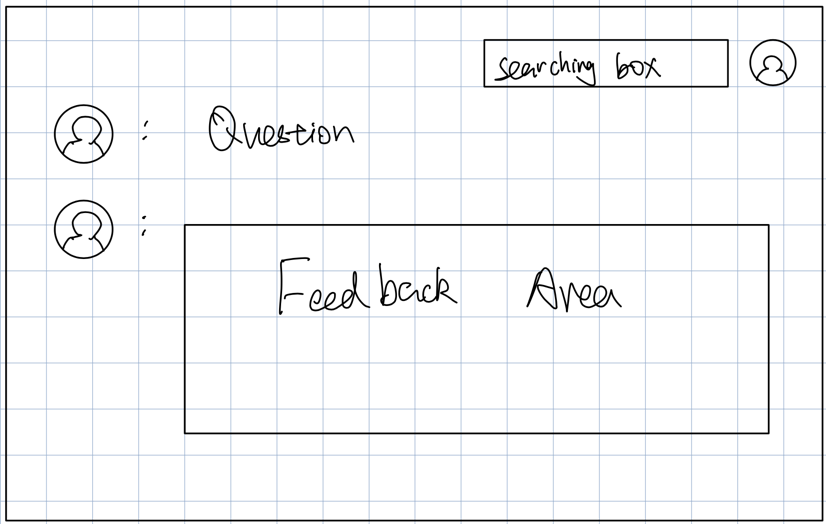 searching box
: Question
:
Feedback Area